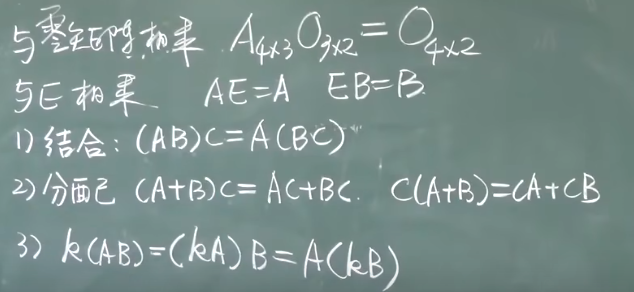 与零矩阵相乘 A₄ₓ₃O₃ₓ₂=O₄ₓ₂
与E相乘 AE=A EB=B.
1)结合:(AB)C=A(BC)
2)分配 (A+B)C=AC+BC. C(A+B)=CA+CB
3) k(AB)=(kA)B=A(kB)